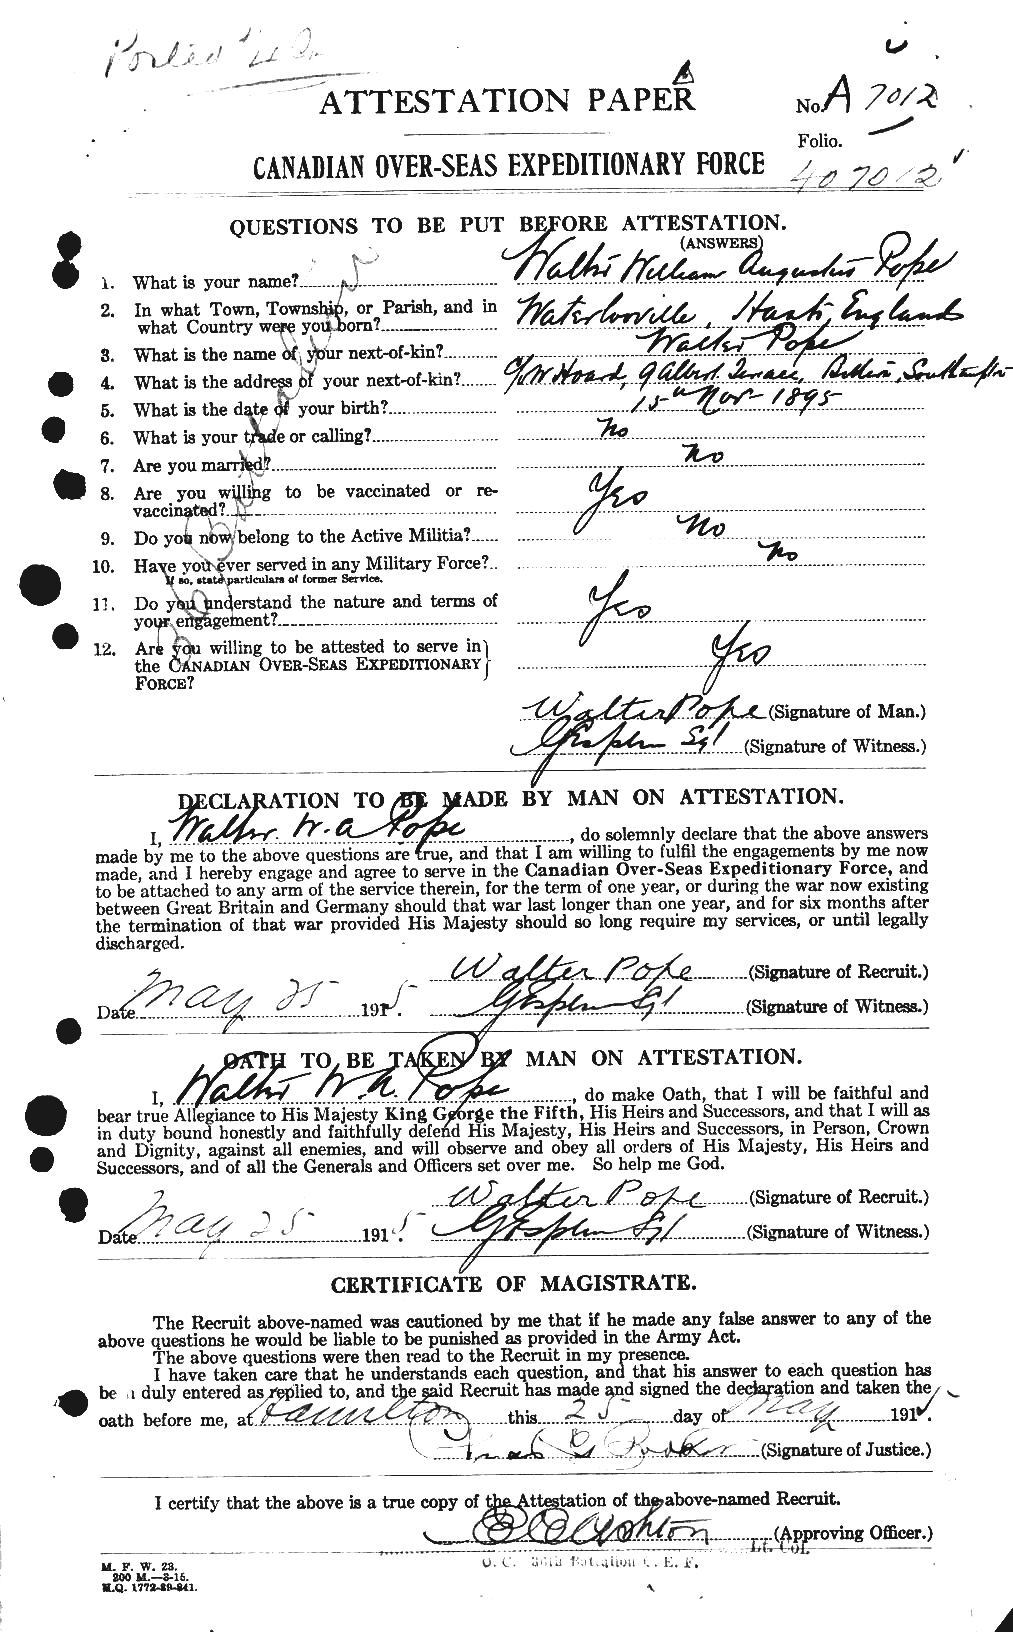 Posted
ATTESTATION PAPER
No. A 7012
Folio.
407012
CANADIAN OVER-SEAS EXPEDITIONARY FORCE
QUESTIONS TO BE PUT BEFORE ATTESTATION.
(ANSWERS)
1. What is your name? Walter William Augustus Pope
2. In what Town, Township, or Parish, and in
what Country were you born? Waterlooville, Hants, England
3. What is the name of your next-of-kin? Walter Pope
4. What is the address of your next-of-kin? c/o W Hoard, 9 Albert Terrace, Southampton
5. What is the date of your birth? 15th Nov- 1895
6. What is your trade or calling? No
7. Are you married? No
8. Are you willing to be vaccinated or re-
vaccinated? Yes
9. Do you now belong to the Active Militia? No
10. Have you ever served in any Military Force? No
If so, state particulars of former Service.
11. Do you understand the nature and terms of
your engagement? Yes
12. Are you willing to be attested to serve in
the CANADIAN OVER-SEAS EXPEDITIONARY Yes
FORCE?
36 Battalion
Walter Pope (Signature of Man.)
Sgt (Signature of Witness.)
DECLARATION TO BE MADE BY MAN ON ATTESTATION.
I, Walter W. A Pope, do solemnly declare that the above answers
made by me to the above questions are true, and that I am willing to fulfil the engagements by me now
made, and I hereby engage and agree to serve in the Canadian Over-Seas Expeditionary Force, and
to be attached to any arm of the service therein, for the term of one year, or during the war now existing
between Great Britain and Germany should that war last longer than one year, and for six months after
the termination of that war provided His Majesty should so long require my services, or until legally
discharged.
Walter Pope (Signature of Recruit.)
Date May 25 1915. Sgt (Signature of Witness.)
OATH TO BE TAKEN BY MAN ON ATTESTATION.
I, Walter W. A. Pope, do make Oath, that I will be faithful and
bear true Allegiance to His Majesty King George the Fifth, His Heirs and Successors, and that I will as
in duty bound honestly and faithfully defend His Majesty, His Heirs and Successors, in Person, Crown
and Dignity, against all enemies, and will observe and obey all orders of His Majesty, His Heirs and
Successors, and of all the Generals and Officers set over me. So help me God.
Walter Pope (Signature of Recruit.)
Date May 25 1915. Sgt (Signature of Witness.)
CERTIFICATE OF MAGISTRATE.
The Recruit above-named was cautioned by me that if he made any false answer to any of the
above questions he would be liable to be punished as provided in the Army Act.
The above questions were then read to the Recruit in my presence.
I have taken care that he understands each question, and that his answer to each question has
been duly entered as replied to, and the said Recruit has made and signed the declaration and taken the
oath before me, at Hamilton this 25 day of May 191.
(Signature of Justice.)
I certify that the above is a true copy of the Attestation of the above-named Recruit.
E C Ashton (Approving Officer.)
Lt. Col.
O. C. 36th Battalion C. E. F.
M. F. W. 23.
200 M.—3-15.
H.Q. 1772-39-841.